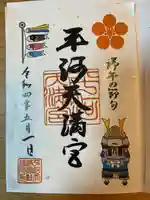 端午の節句
平河天満宮
令和四年五月一日